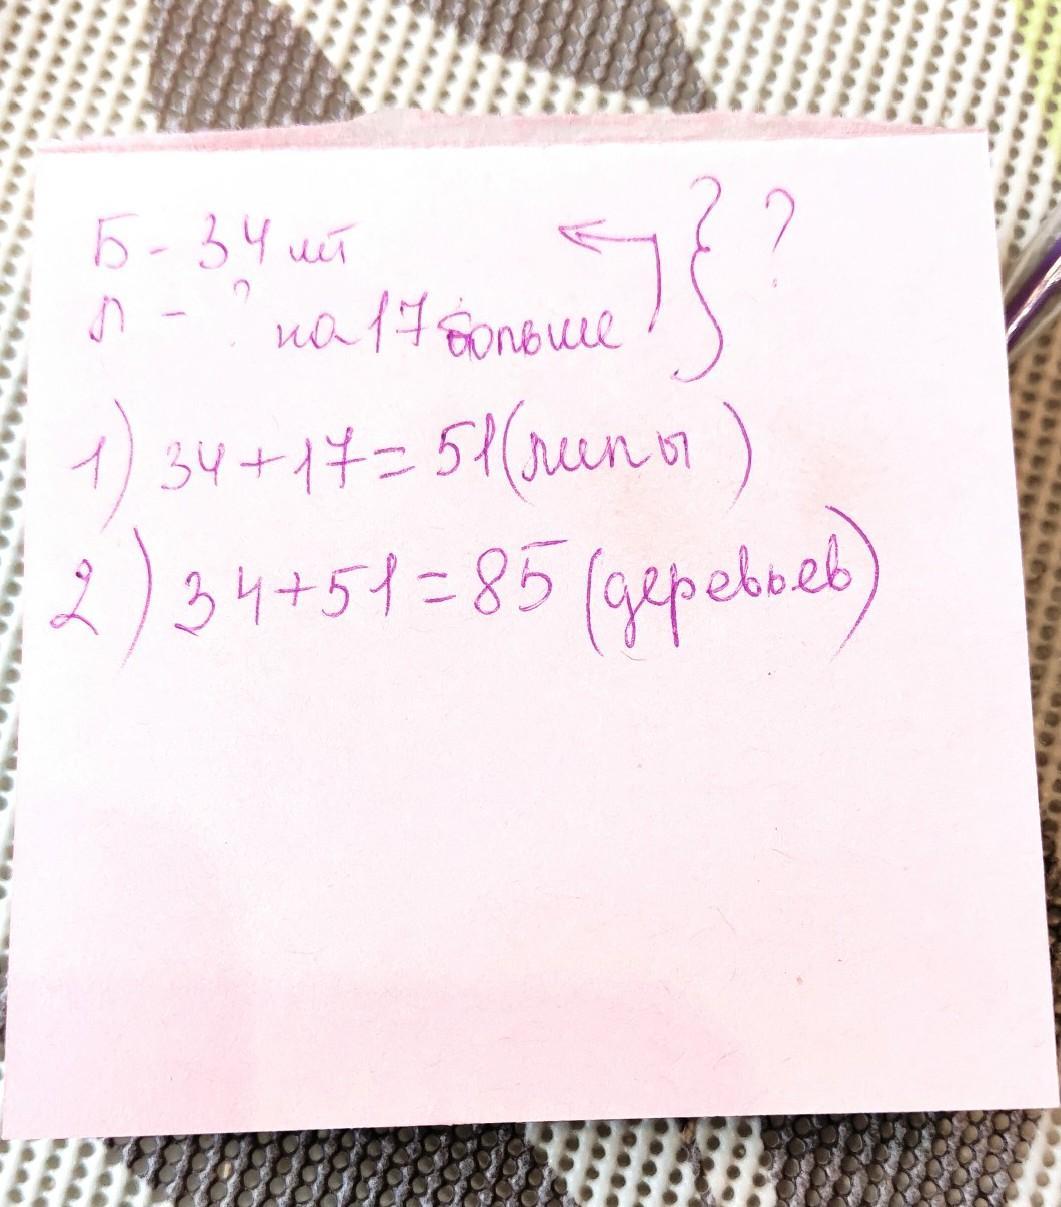 Б - 34 шт } ?
Л - ? на 17 больше
1) 34+17=51(липы)
2) 34+51=85 (деревьев)